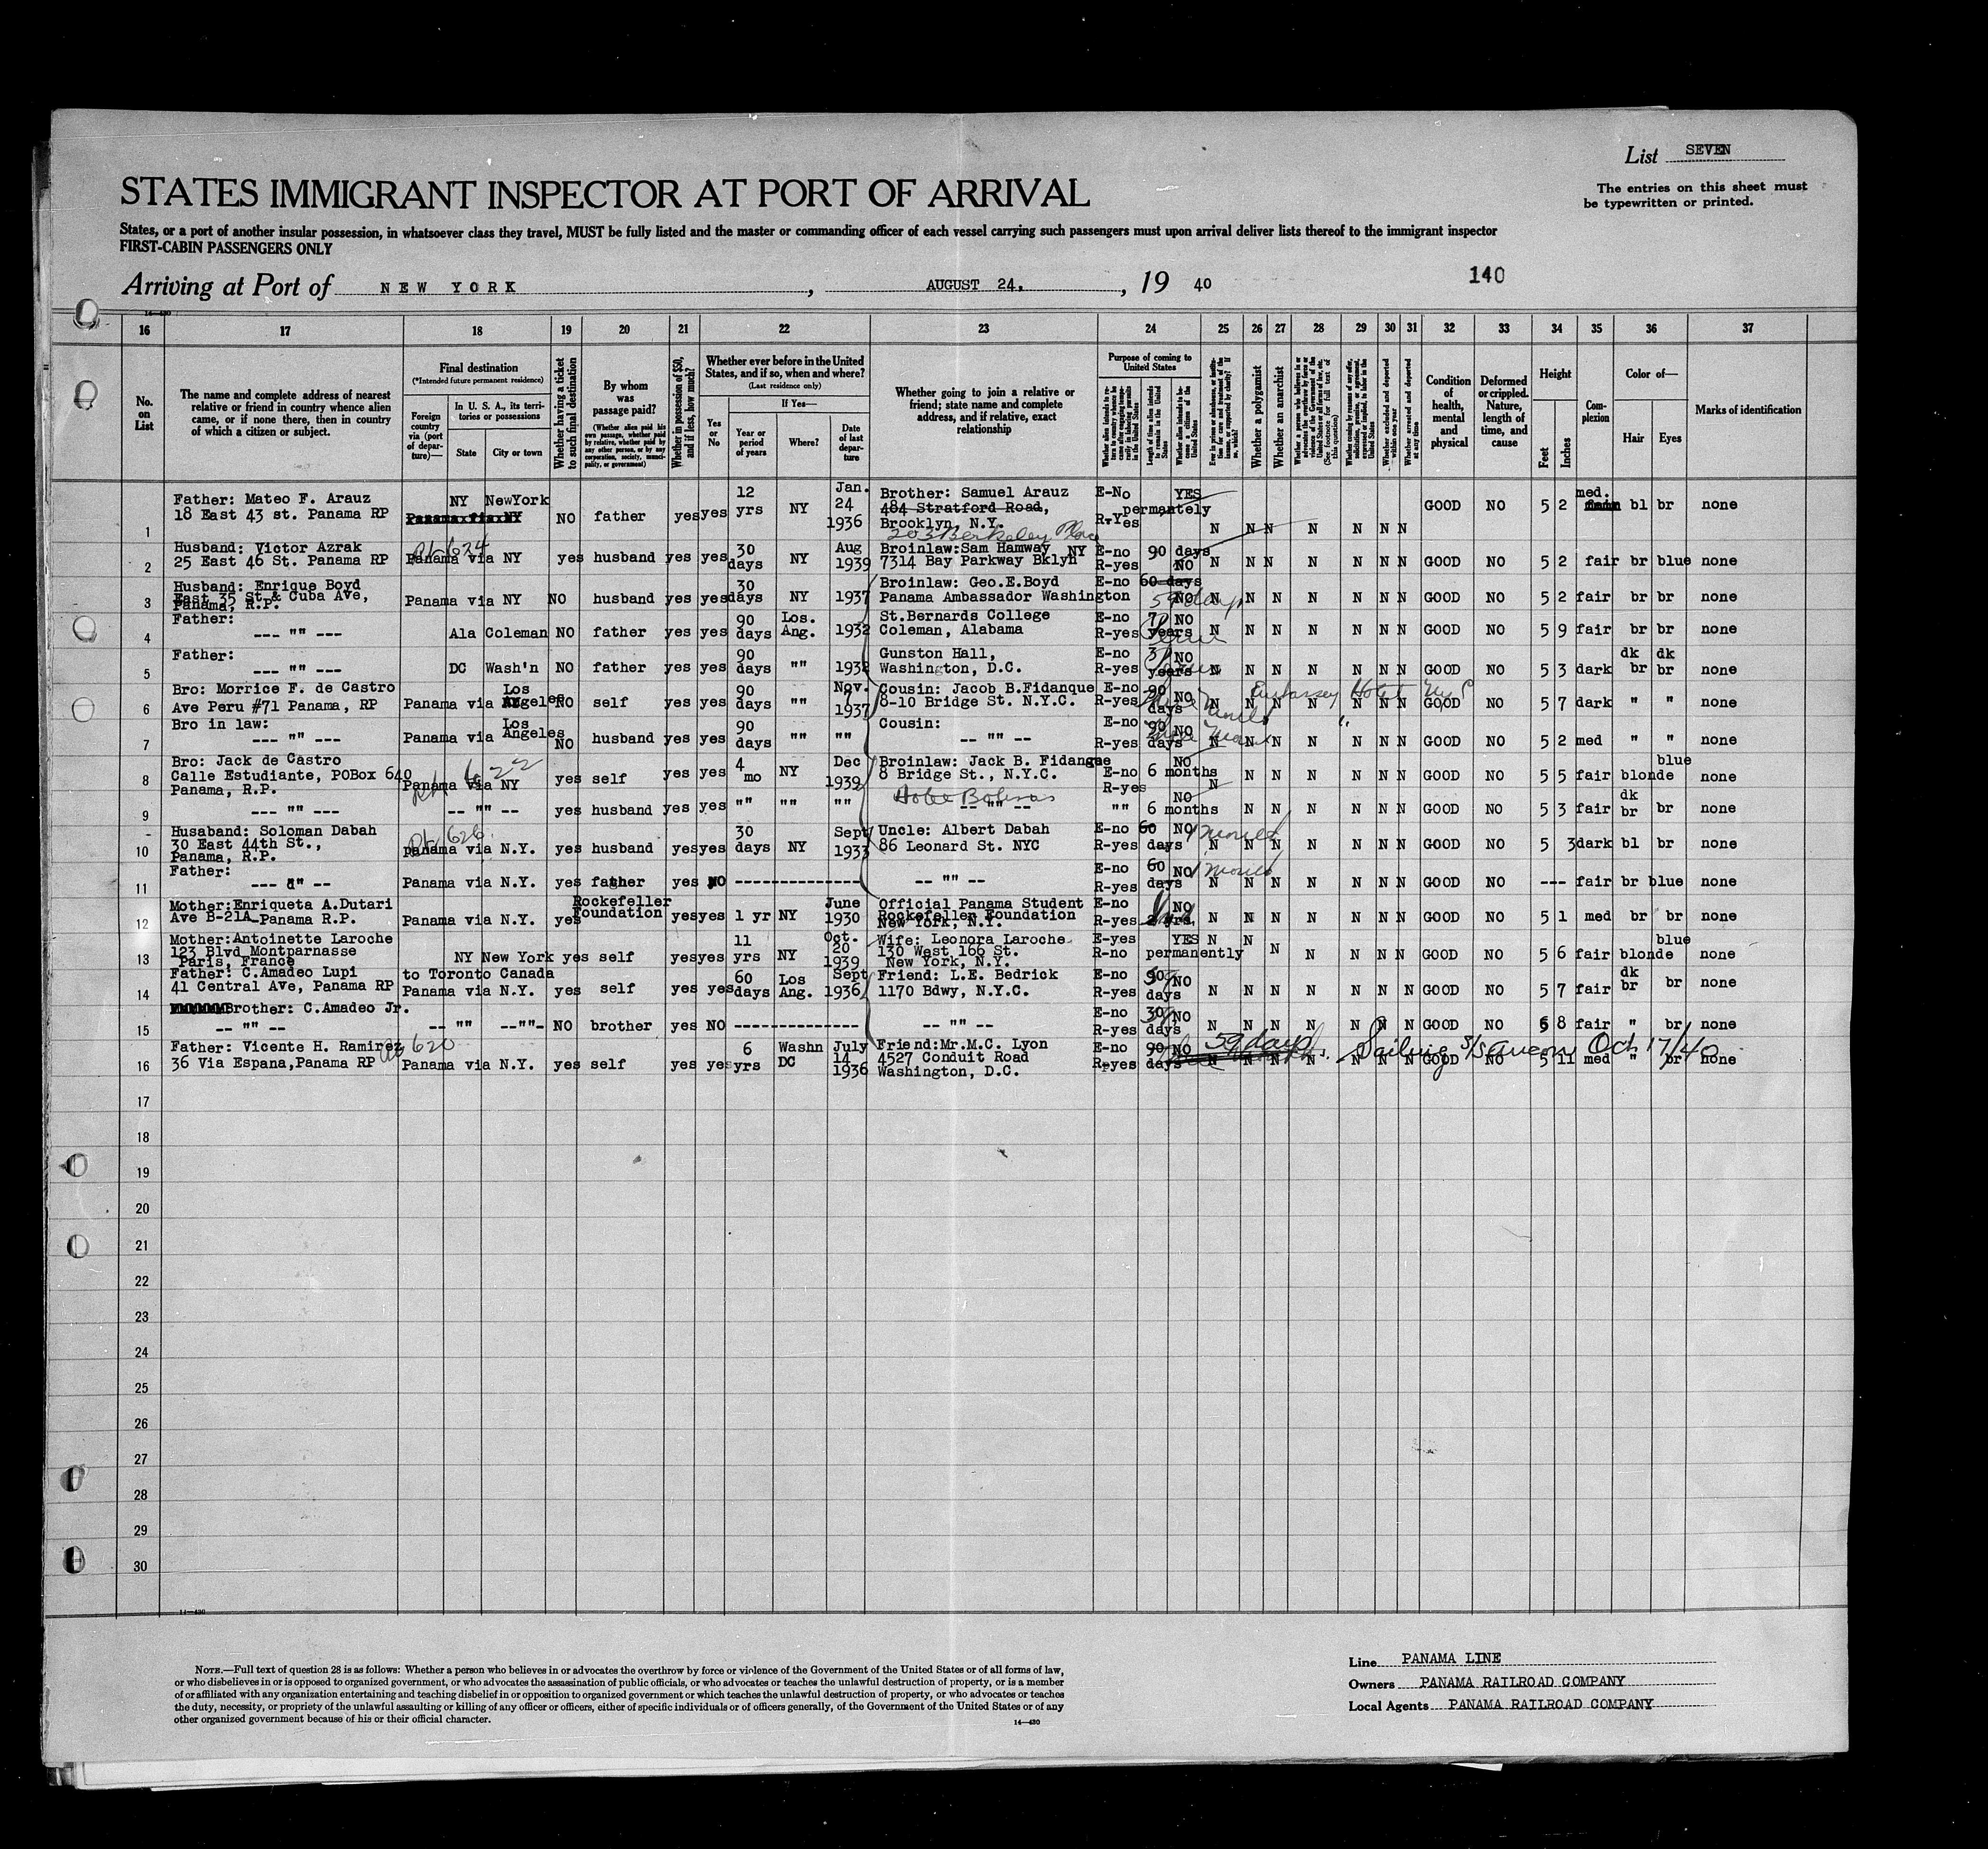 List SEVEN
STATES IMMIGRANT INSPECTOR AT PORT OF ARRIVAL
The entries on this sheet must
be typewritten or printed.
States, or a port of another insular possession, in whatsoever class they travel, MUST be fully listed and the master or commanding officer of each vessel carrying such passengers must upon arrival deliver lists thereof to the immigrant inspector
FIRST-CABIN PASSENGERS ONLY
Arriving at Port of NEW YORK, AUGUST 24, 1940
140
14-430
16 17 18 19 20 21 22 23 24 25 26 27 28 29 30 31 32 33 34 35 36 37
No. on List
The name and complete address of nearest relative or friend in country whence alien came, or if none there, then in country of which a citizen or subject.
Final destination
(*Intended future permanent residence)
Foreign country via (port of departure)—
In U. S. A., its territories or possessions
State
City or town
Whether having a ticket to such final destination
By whom was passage paid?
(Whether alien paid his own passage, whether paid by relative, whether paid by any other person, or by any corporation, society, municipality, or government)
Whether in possession of $50, and if less, how much?
Whether ever before in the United States, and if so, when and where?
(Last residence only)
Yes or No
If Yes—
Year or period of years
Where?
Date of last departure
Whether going to join a relative or friend; state name and complete address, and if relative, exact relationship
Purpose of coming to United States
Whether a polygamist
Whether an anarchist
Whether arrested and deported at any time
Condition of health, mental and physical
Deformed or crippled. Nature, length of time, and cause
Height
Feet
Inches
Complexion
Color of—
Hair
Eyes
Marks of identification
1 Father: Mateo F. Arauz
18 East 43 st. Panama RP NY NewYork NO father yes yes 12 yrs NY Jan. 24 1936 Brother: Samuel Arauz
484 Stratford Road,
Brooklyn, N.Y.
203 Berkeley Place
E-No R-Yes YES permantely N N N N N N N GOOD NO 5 2 med. bl br none
2 Husband: Victor Azrak
25 East 46 St. Panama RP Panama via NY yes husband yes yes 30 days NY Aug 1939 Broinlaw:Sam Hamway NY
7314 Bay Parkway Bklyn E-no R-yes 90 days NO N N N N N N N GOOD NO 5 2 fair br blue none
3 Husband: Enrique Boyd
East 35 St & Cuba Ave,
Panama, R.P. Panama via NY NO husband yes yes 30 days NY 1937 Broinlaw: Geo.E.Boyd
Panama Ambassador Washington E-no 60 days 59 days NO N N N N N N N GOOD NO 5 2 fair br br none
4 Father:
--- "" --- Ala Coleman NO father yes yes 90 days Los. Ang. 1932 St.Bernards College
Coleman, Alabama E-no R-yes 7 years NO N N N N N N N GOOD NO 5 9 fair br br none
5 Father:
--- "" --- DC Wash'n NO father yes yes 90 days "" 1932 Gunston Hall,
Washington, D.C. E-no R-yes 3 years NO N N N N N N N GOOD NO 5 3 dark dk br dk br none
6 Bro: Morrice F. de Castro
Ave Peru #71 Panama, RP Panama via Los Angeles NO self yes yes 90 days "" Nov. 7 1937 Cousin: Jacob B.Fidanque
8-10 Bridge St. N.Y.C. E-no R-yes 90 days NO N N N N N N N GOOD NO 5 7 dark " " none
Embassey Hotel
7 Bro in law:
--- "" --- Panama via Los Angeles NO husband yes yes 90 days "" "" Cousin:
-- "" -- E-no R-yes 90 days NO N N N N N N N GOOD NO 5 2 med " " none
8 Bro: Jack de Castro
Calle Estudiante, POBox 640
Panama, R.P. Panama via NY yes self yes yes 4 mo NY Dec 1939 Broinlaw: Jack B. Fidanque
8 Bridge St., N.Y.C. E-no R-yes 6 months NO N N N N N N N GOOD NO 5 5 fair blonde blue none
9 --- "" --- -- "" -- yes husband yes yes "" "" "" -- "" -- "" 6 months NO N N N N N N GOOD NO 5 3 fair dk br br none
10 Husaband: Soloman Dabah
30 East 44th St.,
Panama, R.P. panama via N.Y. yes husband yes yes 30 days NY Sept 1933 Uncle: Albert Dabah
86 Leonard St. NYC E-no R-yes 60 days NO N N N N N N N GOOD NO 5 3 dark bl br none
Rh 626
11 Father:
--- "" -- Panama via N.Y. yes father yes NO -------------- -- "" -- E-no R-yes 60 days NO N N N N N N N GOOD NO --- fair br blue none
12 Mother:Enriqueta A.Dutari
Ave B-21A-Panama R.P. Panama via N.Y. yes Rockefeller Foundation yes yes 1 yr NY June 1930 Official Panama Student
Rockefeller Foundation
New York, N.Y. E-no R-yes 2 yrs. NO N N N N N N N GOOD NO 5 1 med br br none
13 Mother:Antoinette Laroche
123 Blvd Montparnasse
Paris, France NY New York yes self yes yes 11 yrs NY Oct. 20 1939 Wife: Leonora Laroche
130 West 166 St.
New York, N.Y. E-yes R-no YES permanently N N N N N N N GOOD NO 5 6 fair blonde blue none
14 Father: C.Amadeo Lupi
41 Central Ave, Panama RP to Toronto Canada
Panama via N.Y. yes self yes yes 60 days Los Ang. Sept 1936 Friend: L.E. Bedrick
1170 Bdwy, N.Y.C. E-no R-yes 90 days NO N N N N N N N GOOD NO 5 7 fair dk br br none
15 Brother: C.Amadeo Jr.
-- "" -- -- "" --""- NO brother yes NO -------------- -- "" -- E-no R-yes 30 days NO N N N N N N N GOOD NO 5 8 fair " br none
16 Father: Vicente H. Ramirez
36 Via Espana,Panama RP Panama via N.Y. yes self yes yes 6 yrs Washn DC July 14 1936 Friend:Mr.M.C. Lyon
4527 Conduit Road
Washington, D.C. E-no R-yes 90 days NO N N N N N N N GOOD NO 5 11 med " br none
59 days Sailing S/S Ancon Oct 17/40
17
18
19
20
21
22
23
24
25
26
27
28
29
30
14-430
NOTE.—Full text of question 28 is as follows: Whether a person who believes in or advocates the overthrow by force or violence of the Government of the United States or of all forms of law,
or who disbelieves in or is opposed to organized government, or who advocates the assassination of public officials, or who advocates or teaches the unlawful destruction of property, or is a member
of or affiliated with any organization entertaining and teaching disbelief in or opposition to organized government or which teaches the unlawful destruction of property, or who advocates or teaches
the duty, necessity, or propriety of the unlawful assaulting or killing of any officer or officers, either of specific individuals or of officers generally, of the Government of the United States or of any
other organized government because of his or their official character.
14-430
Line PANAMA LINE
Owners PANAMA RAILROAD COMPANY
Local Agents PANAMA RAILROAD COMPANY